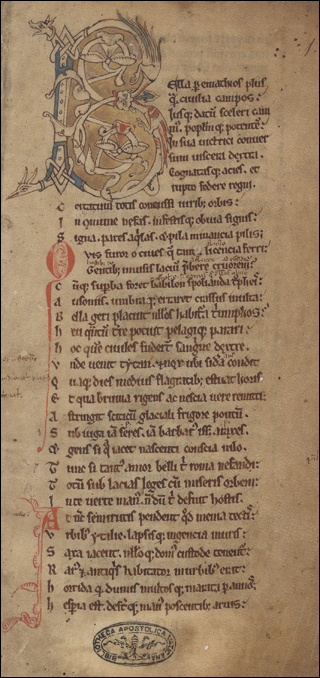 Bella ꝑ emathios plus
q̃ ciuilia campos.
Iusq; datũ sceleri cani
mꝰ. populũq; potentẽ
In sua uictrici conuer
sum uiscera dextra.
Cognatasq; acies. et
rupto federe regni.
Certatum totis concussi uirib; orbis.
In commune nefas. infestisq; obuia signis.
Signa. pares aq̃las. & pila minancia pilis;
Quis furor o ciues q̃ tanta licencia ferri.
Gentib; inuisis laciũ p̃bere cruorem.
Cũq; supba foret babilon spolianda tropheis.
Ausoniis. umbraq; erraret crassus inulta.
Bella geri placuit nullos habitura triũphos.
Heu quantũ t̃re potuit pelagiq; parari.
Hoc quẽ ciuiles fuderũt sanguine dextre.
Vnde uenit tytan. & nox ubi sidera condit
Quaq; dies medius flagrãtib; estuat horis
Et qua bruma rigens ac nescia uere remitti.
Astringit sciticũ glaciali frigore pontũ.
Sub iuga iã seres. iã barbarꝰ isset araxes
Et gens si q̃ iacet nascenti conscia nilo.
Tunc si tantꝰ amor belli t̃ roma nefandi.
Totũ sub lacias leges cũ miseris orbem.
In te uerte manꝰ. nõdũ t̃ defuit hostis.
At nc̃ semirutis pendent qd̃ menia tectis.
Vrbib; ytalie. lapsisq; ingencia muris.
Saxa iacent. nulloq; domꝰ custode tenent̃.
Rarꝰ & antiq̃s habitator in urbib; errat.
Horrida q̃ dumis multosq; inarata p annos.
Hesperia est. desũtq; manꝰ poscentib; aruis.
BIBLIOTHECA APOSTOLICA VATICANA